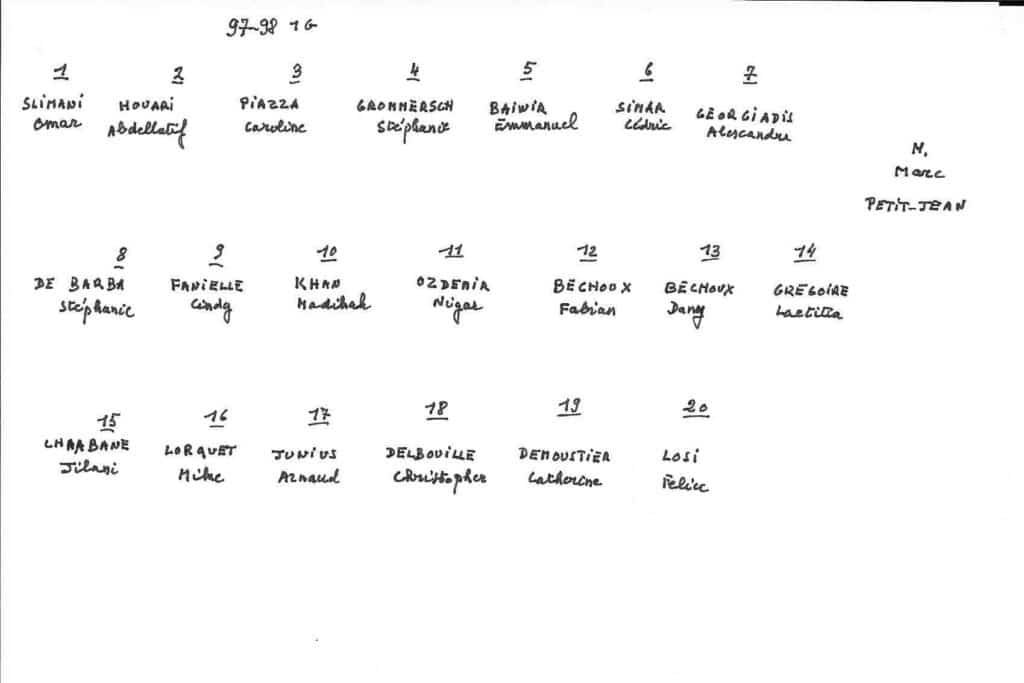 97-98 1G
1 2 3 4 5 6 7
SLIMANI HOUARI PIAZZA GROMMERSCH BAIWIR SIMAR GEORGIADIS
Omar Abdellatif Caroline Stéphanie Emmanuel Cédric Alescandre
M.
Marc
PETIT-JEAN
8 9 10 11 12 13 14
DE BARBA FANIELLE KHAN OZDEMIR BECHOUX BECHOUX GREGOIRE
Stéphanie Cindy Madihah Nigar Fabian Dany Laetitia
15 16 17 18 19 20
CHARBANE LORQUET JUNIUS DELBOUILLE DEMOUSTIER LOSI
Jilani Mike Arnaud Christopher Catherine Félice